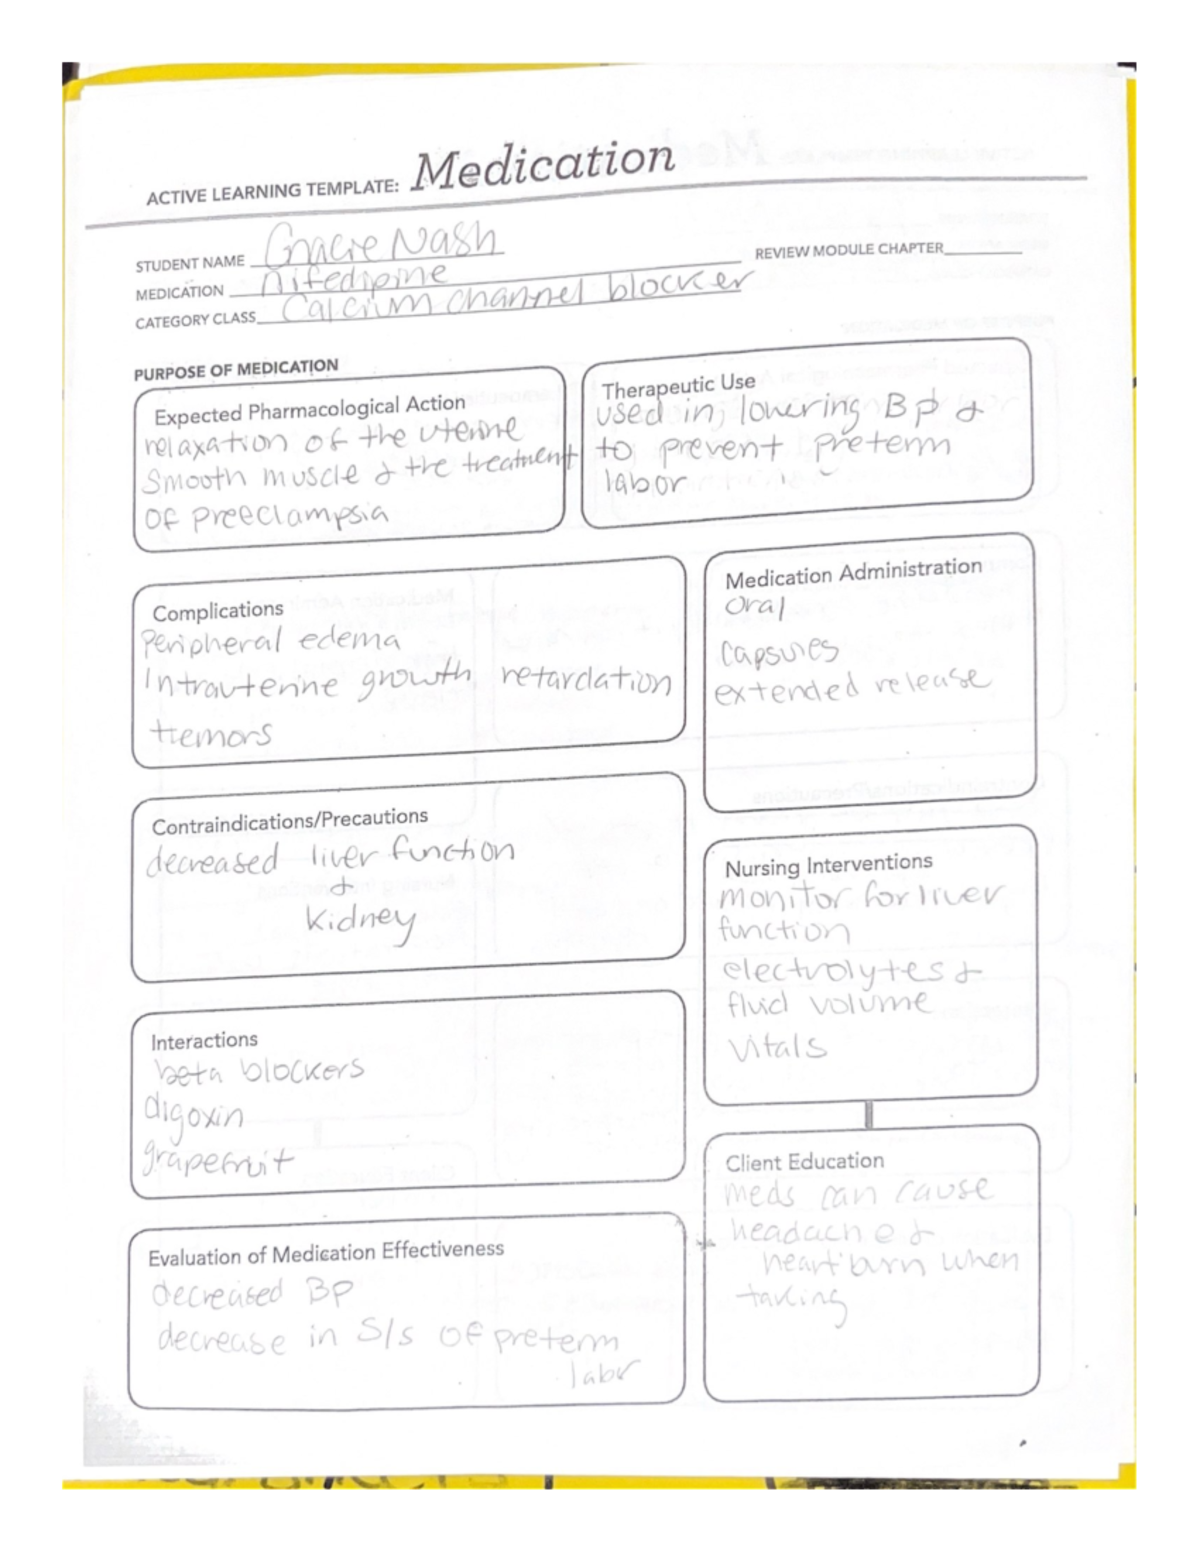 ACTIVE LEARNING TEMPLATE: Medication
STUDENT NAME Gracie Nash
REVIEW MODULE CHAPTER
MEDICATION nifedipine
CATEGORY CLASS Calcium channel blocker
PURPOSE OF MEDICATION
Expected Pharmacological Action
relaxation of the uterine
smooth muscle & the treatment
of preeclampsia
Therapeutic Use
used in; lowering BP &
to prevent preterm
labor
Complications
Peripheral edema
Intrauterine growth retardation
tremors
Medication Administration
oral
capsules
extended release
Contraindications/Precautions
decreased liver function
&
kidney
Nursing Interventions
monitor for liver
function
electrolytes &
fluid volume
vitals
Interactions
beta blockers
digoxin
grapefruit
Client Education
meds can cause
headache &
heartburn when
taking
Evaluation of Medication Effectiveness
decreased BP
decrease in S/s of preterm
labr